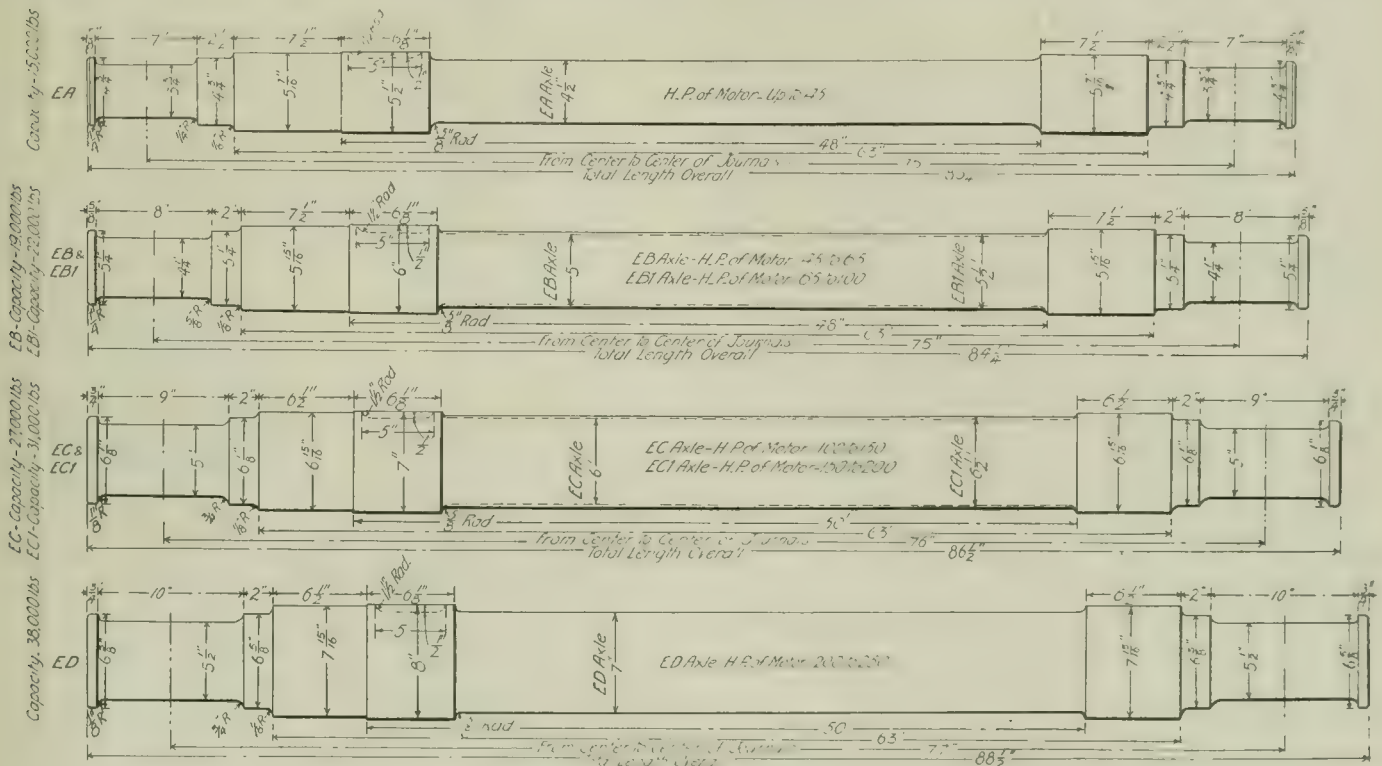 EA
7"
7 1/2"
5"
4 3/4"
5 1/2"
EA Axle
4 1/2"
H.P. of Motor-Up to 45
7 1/2"
7"
5/8" Rad
48"
63"
From Center to Center of Journals
Total Length Overall
EB-Capacity-19,000 lbs
EB1-Capacity-22,000 lbs
EB &
EB1
5/8"
8"
2"
7 1/2"
1 1/2" Rad
6 1/8"
5"
5 1/4"
4 1/4"
5 1/4"
5 15/16"
6"
EB Axle
5"
EB Axle-H.P. of Motor 45 to 65
EB1 Axle-H.P. of Motor 65 to 100
EB1 Axle
5 1/2"
7 1/2"
2"
8"
5 15/16"
5 1/4"
4 1/4"
5 1/4"
5/8" Rad
48"
63"
From Center to Center of Journals
75"
Total Length Overall
84 1/4"
EC-Capacity-27,000 lbs
EC1-Capacity-31,000 lbs
EC &
EC1
3/4"
9"
2"
6 1/2"
1 1/2" Rad
6 1/8"
5"
6 1/8"
5"
6 1/8"
6 15/16"
7"
EC Axle
6"
EC Axle-H.P. of Motor-100 to 150
EC1 Axle-H.P. of Motor-150 to 200
EC1 Axle
6 1/2"
6 1/2"
2"
9"
6 15/16"
6 1/8"
5"
6 1/8"
Rad
50"
63"
From Center to Center of Journals
76"
Total Length Overall
86 1/2"
Capacity, 38,000 lbs
ED
10"
2"
6 1/2"
1 1/2" Rad.
6 1/8"
5
5 1/2"
6 5/8"
7 15/16"
8"
ED Axle
7"
ED Axle H.P. of Motor 200 to 250
2"
10"
7 15/16"
6 5/8"
5 1/2"
6 5/8"
Rad
50
63"
From Center to Center of Journals
77"
Total Length Overall
88 1/2"